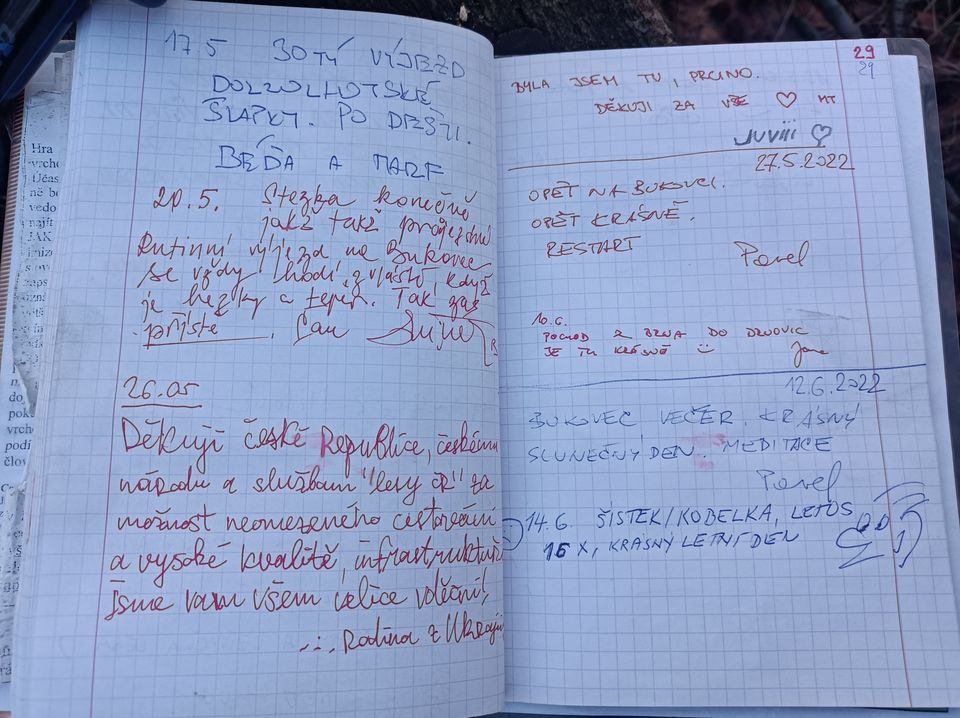 17.5 30TÝ VÝJEZD
DOLZOLHOTSKÉ
ŠLAPKY. PO DEŠTI.
BEĎA A
20.5. Stezka konečně
jakž takž projezdná
Rutinní výjezd na Bukovec
se vždy hodí, zvláště, když
je hezky a teplo. Tak zas
příště. Čau
26.05
Děkuji české Republice, českému
národu a službam "lesy čr" za
možnost neomezeného cestování
a vysoké kvalitě, infrastruktuře
jsme vam všem velice vděční!
... Rodina z Ukrajini
29
29
BYLA JSEM TU, PRCINO.
DĚKUJI ZA VŠE ♡ MT
JUViii ♡
27.5.2022
OPĚT NA BUKOVCI.
OPĚT KRÁSNĚ.
RESTART
Pavel
10.6.
POCHOD Z BRNA DO DRNOVIC
JE TU KRÁSNĚ
Jana
12.6.2022
BUKOVEC VEČER. KRÁSNÝ
SLUNEČNÝ DEN. MEDITACE
Pavel
14.6. ŠÍSTEK/KOBELKA, LETOS
16 X, KRASNÝ LETNÍ DEN